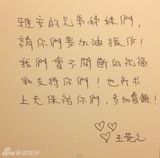 雅安的兄弟姊妹們，
請你們要加油振作！
我們會不間斷的祝福
和支持你們！也祈求
上天保佑你們，多加